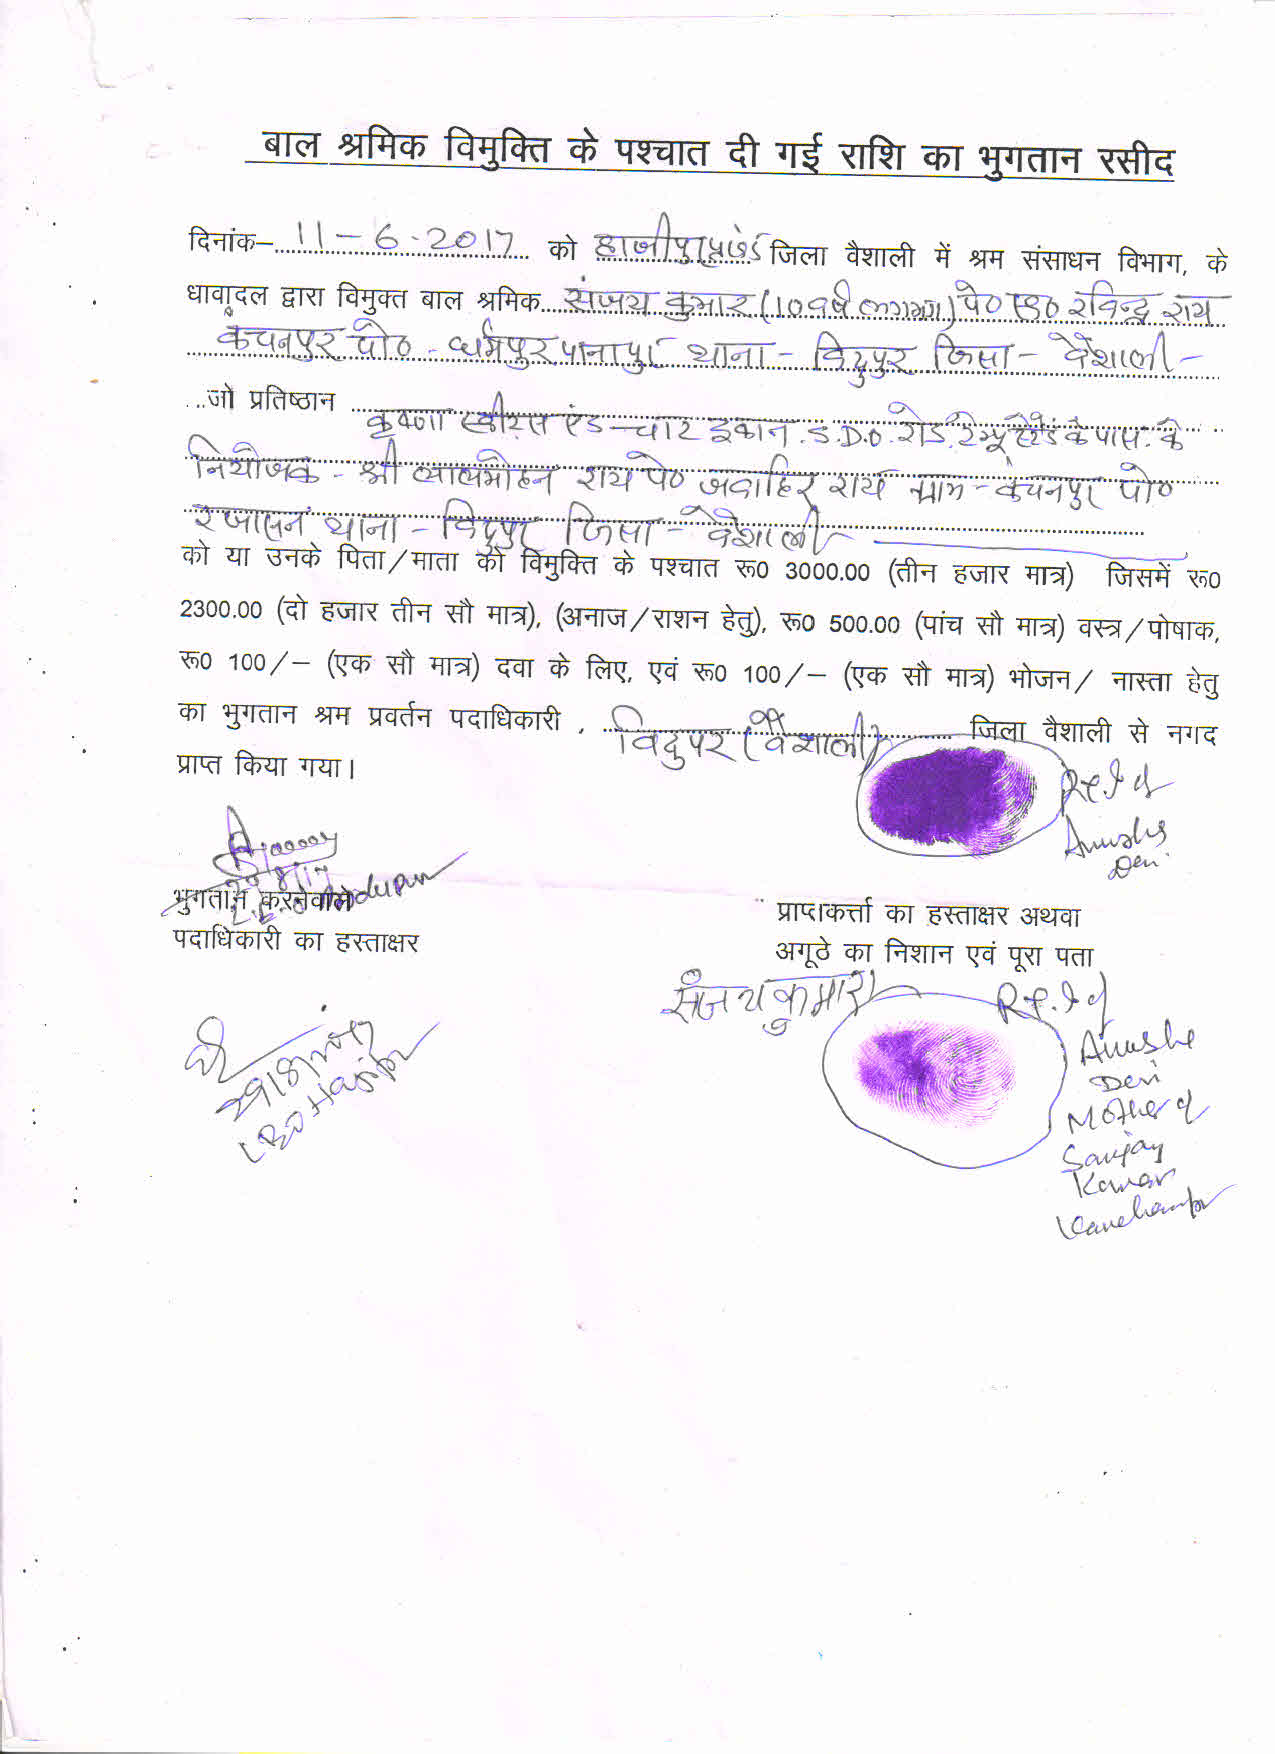 बाल श्रमिक विमुक्ति के पश्चात दी गई राशि का भुगतान रसीद
दिनांक– 11-6-2017 को हाजीपुर जिला वैशाली में श्रम संसाधन विभाग, के
धावादल द्वारा विमुक्त बाल श्रमिक संजय कुमार (10 वर्ष लगभग) पे० रविन्द्र राय
कंचनपुर पो० - धर्मपुर पानापुर थाना - विदुपुर जिला - वैशाली -
...जो प्रतिष्ठान कृष्णा स्वीट्स एंड चाट दुकान S.D.O. रोड के पास के
नियोजक - श्री लालमोहन राय पे० जवाहिर राय ग्राम - कंचनपुर पो०
थाना - विदुपुर जिला - वैशाली
को या उनके पिता/माता को विमुक्ति के पश्चात रू0 3000.00 (तीन हजार मात्र) जिसमें रू0
2300.00 (दो हजार तीन सौ मात्र), (अनाज/राशन हेतु), रू0 500.00 (पांच सौ मात्र) वस्त्र/पोषाक,
रू0 100/– (एक सौ मात्र) दवा के लिए, एवं रू0 100/– (एक सौ मात्र) भोजन/ नास्ता हेतु
का भुगतान श्रम प्रवर्तन पदाधिकारी , विदुपुर (वैशाली) जिला वैशाली से नगद
प्राप्त किया गया।
Anusha
Devi
भुगतान करनेवाले
पदाधिकारी का हस्ताक्षर
प्राप्तकर्त्ता का हस्ताक्षर अथवा
अगूठे का निशान एवं पूरा पता
संजय कुमार
Anusha
Devi
Mother of
Sanjay
Kumar
Kanchanpur
LEO Hajipur